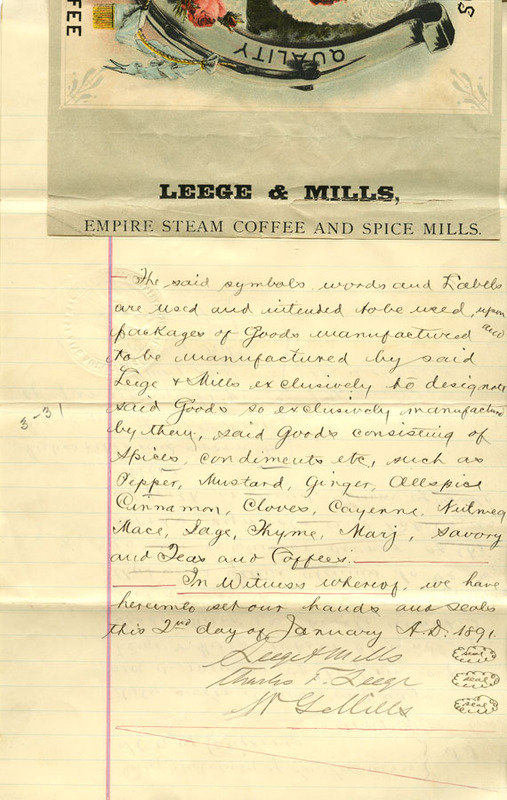 FFEE
QUALITY
DS
LEEGE & MILLS,
EMPIRE STEAM COFFEE AND SPICE MILLS.
The said symbols words and Labels
are used and intended to be used, upon
packages of Goods manufactured and
to be manufactured by said
Leige & Mills exclusively to designate
said Goods so exclusively manufactured
by them, said Goods consisting of
3-31
Spices, condiments etc, such as
Pepper, Mustard, Ginger, Allspice
Cinnamon, Cloves, Cayenne, Nutmeg
Mace, Sage, Thyme, Marj, Savory
and Teas and Coffees.
In Witness whereof, we have
hereunto set our hands and seals
this 2nd day of January A.D. 1891.
Leege & Mills seal
Charles F. Leege seal
Mills seal